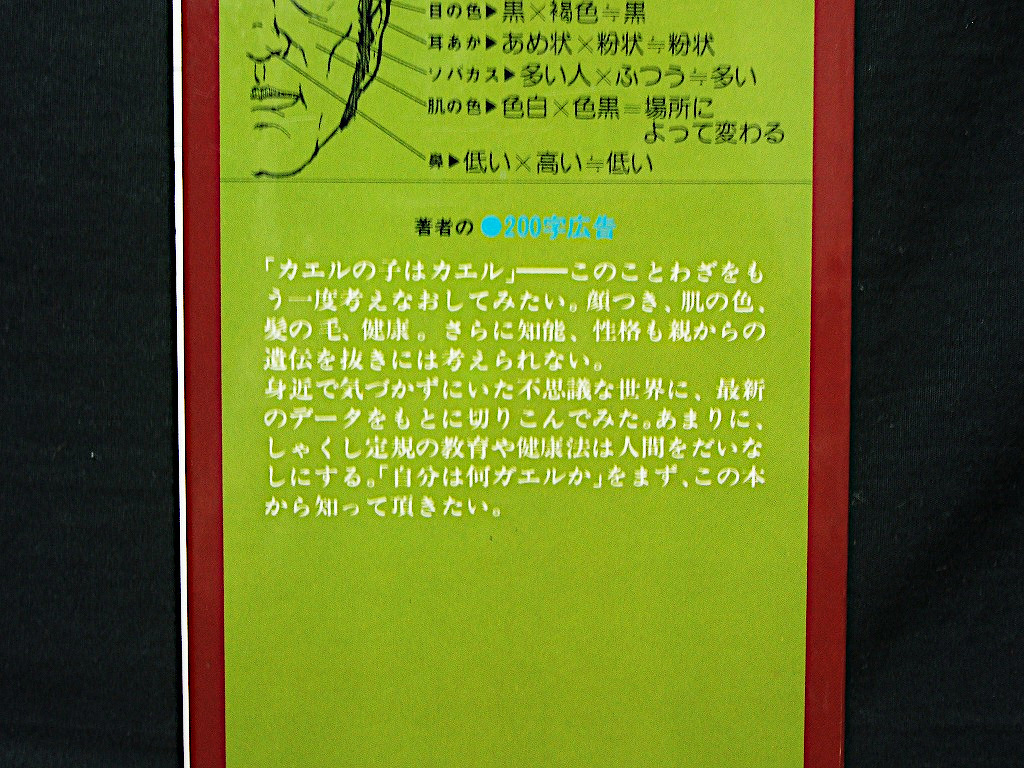 目の色▶黒×褐色≒黒
耳あか▶あめ状×粉状≒粉状
ソバカス▶多い人×ふつう≒多い
肌の色▶色白×色黒＝場所に
よって変わる
鼻▶低い×高い≒低い
著者の ●200字広告
「カエルの子はカエル」――このことわざをも
う一度考えなおしてみたい。顔つき、肌の色、
髪の毛、健康。さらに知能、性格も親からの
遺伝を抜きには考えられない。
身近で気づかずにいた不思議な世界に、最新
のデータをもとに切りこんでみた。あまりに、
しゃくし定規の教育や健康法は人間をだいな
しにする。「自分は何ガエルか」をまず、この本
から知って頂きたい。